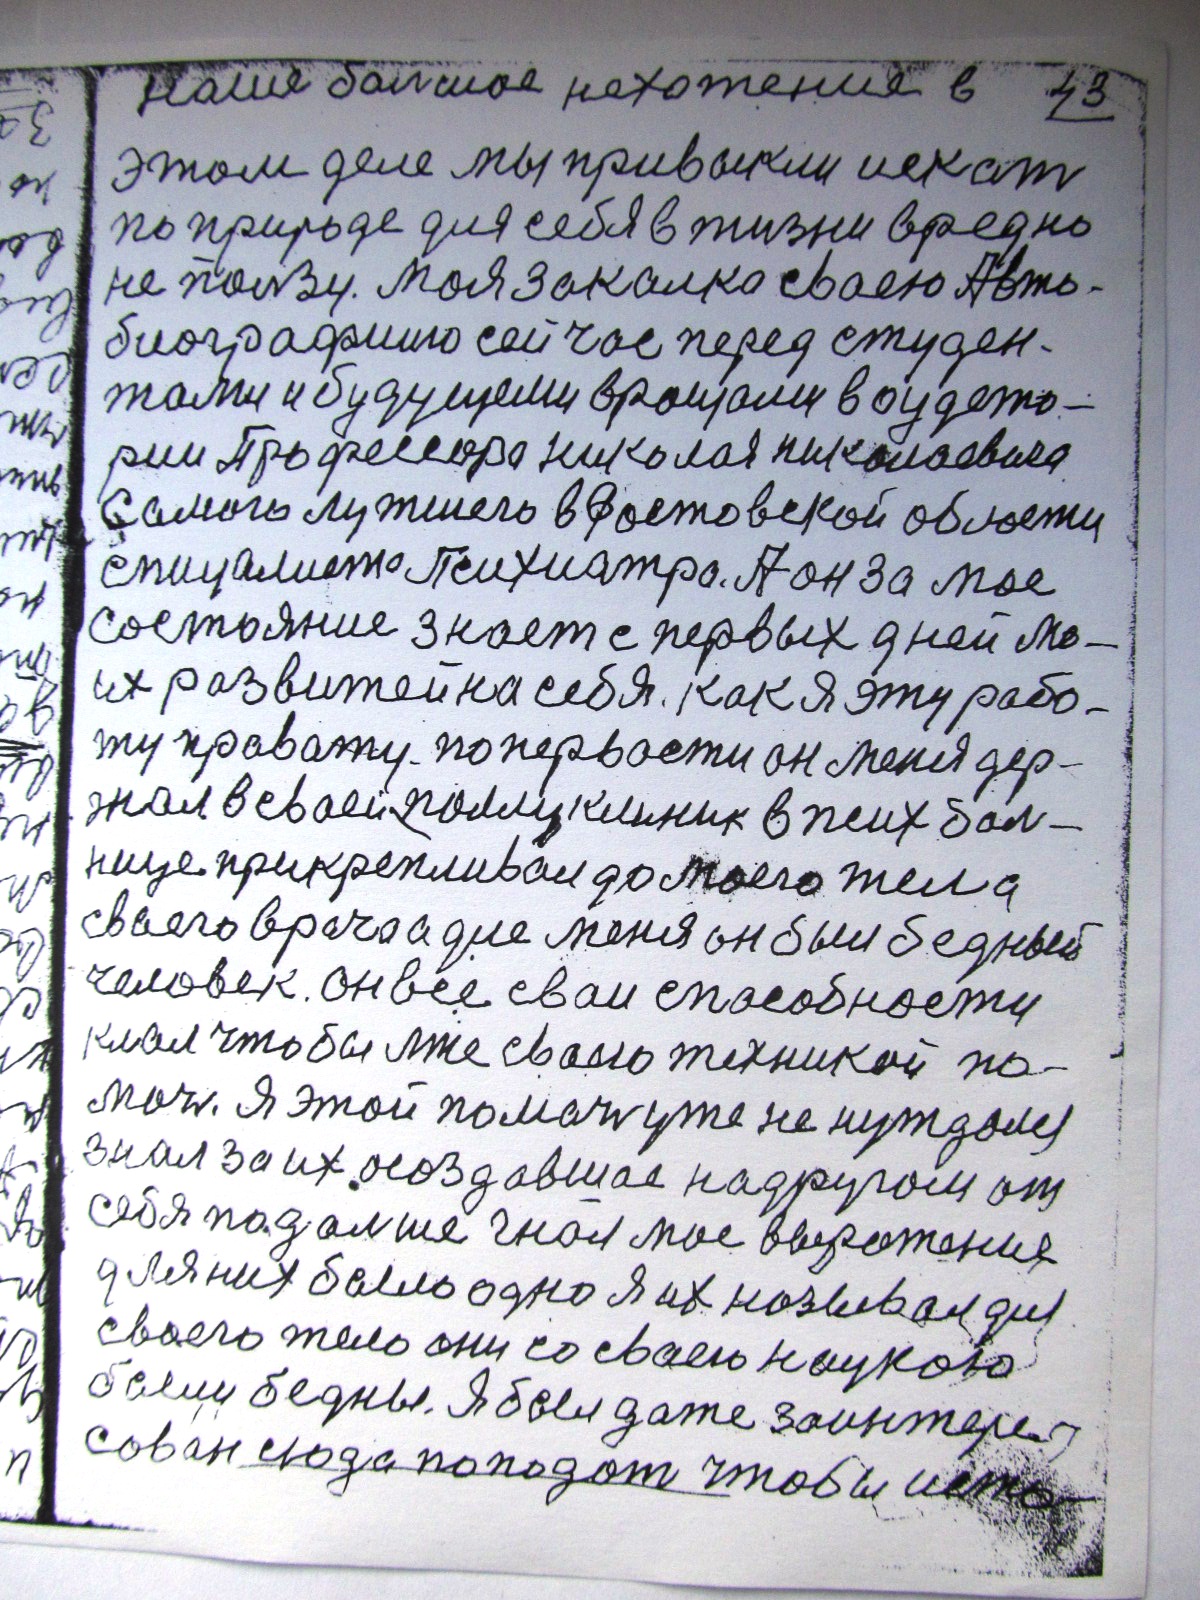 наше болшое нехотение в 43
этом деле мы привыкли искат
по природе для себя в жизни вредно
не ползу. Моя закалка сваею Авто-
биографиию сейчас перед студен-
тами и будущеми врачами в аудето-
рии Профессора Николая Николаевича
Самого лутшего в Ростовской области
спицалиста Психиатра. А он за мое
состояние знает с первых дней мо-
их развитей на себя. Как я эту рабо-
ту праважу. по первости он меня дер-
жал в сваей полуклиник в псих бол-
нице прикрепливал до моего тела
сваего врача а дле меня он был бедный
человек. Он все сваи способности
клал чтобы мне сваею техникой по-
моч. Я этой помач уже не нуждался
знал за их создавшае надругом от
себя подалше гнал мое выражения
для них было одно я их называл для
сваего тело они со сваею наукою
были бедны. Я был даже заинтере-
сован сюда поподат чтобы исто-